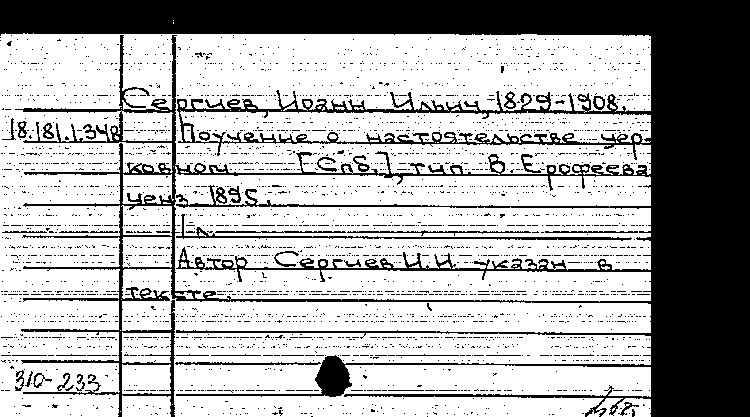 Сергиев, Иоанн Ильич, 1829-1908.
18.181.1.348 Поучение о настоятельстве цер-
ковном. [Спб.], тип. В. Ерофеева
ценз. 1895.
1 л.
Автор Сергиев И.И. указан в
тексте.
310-233